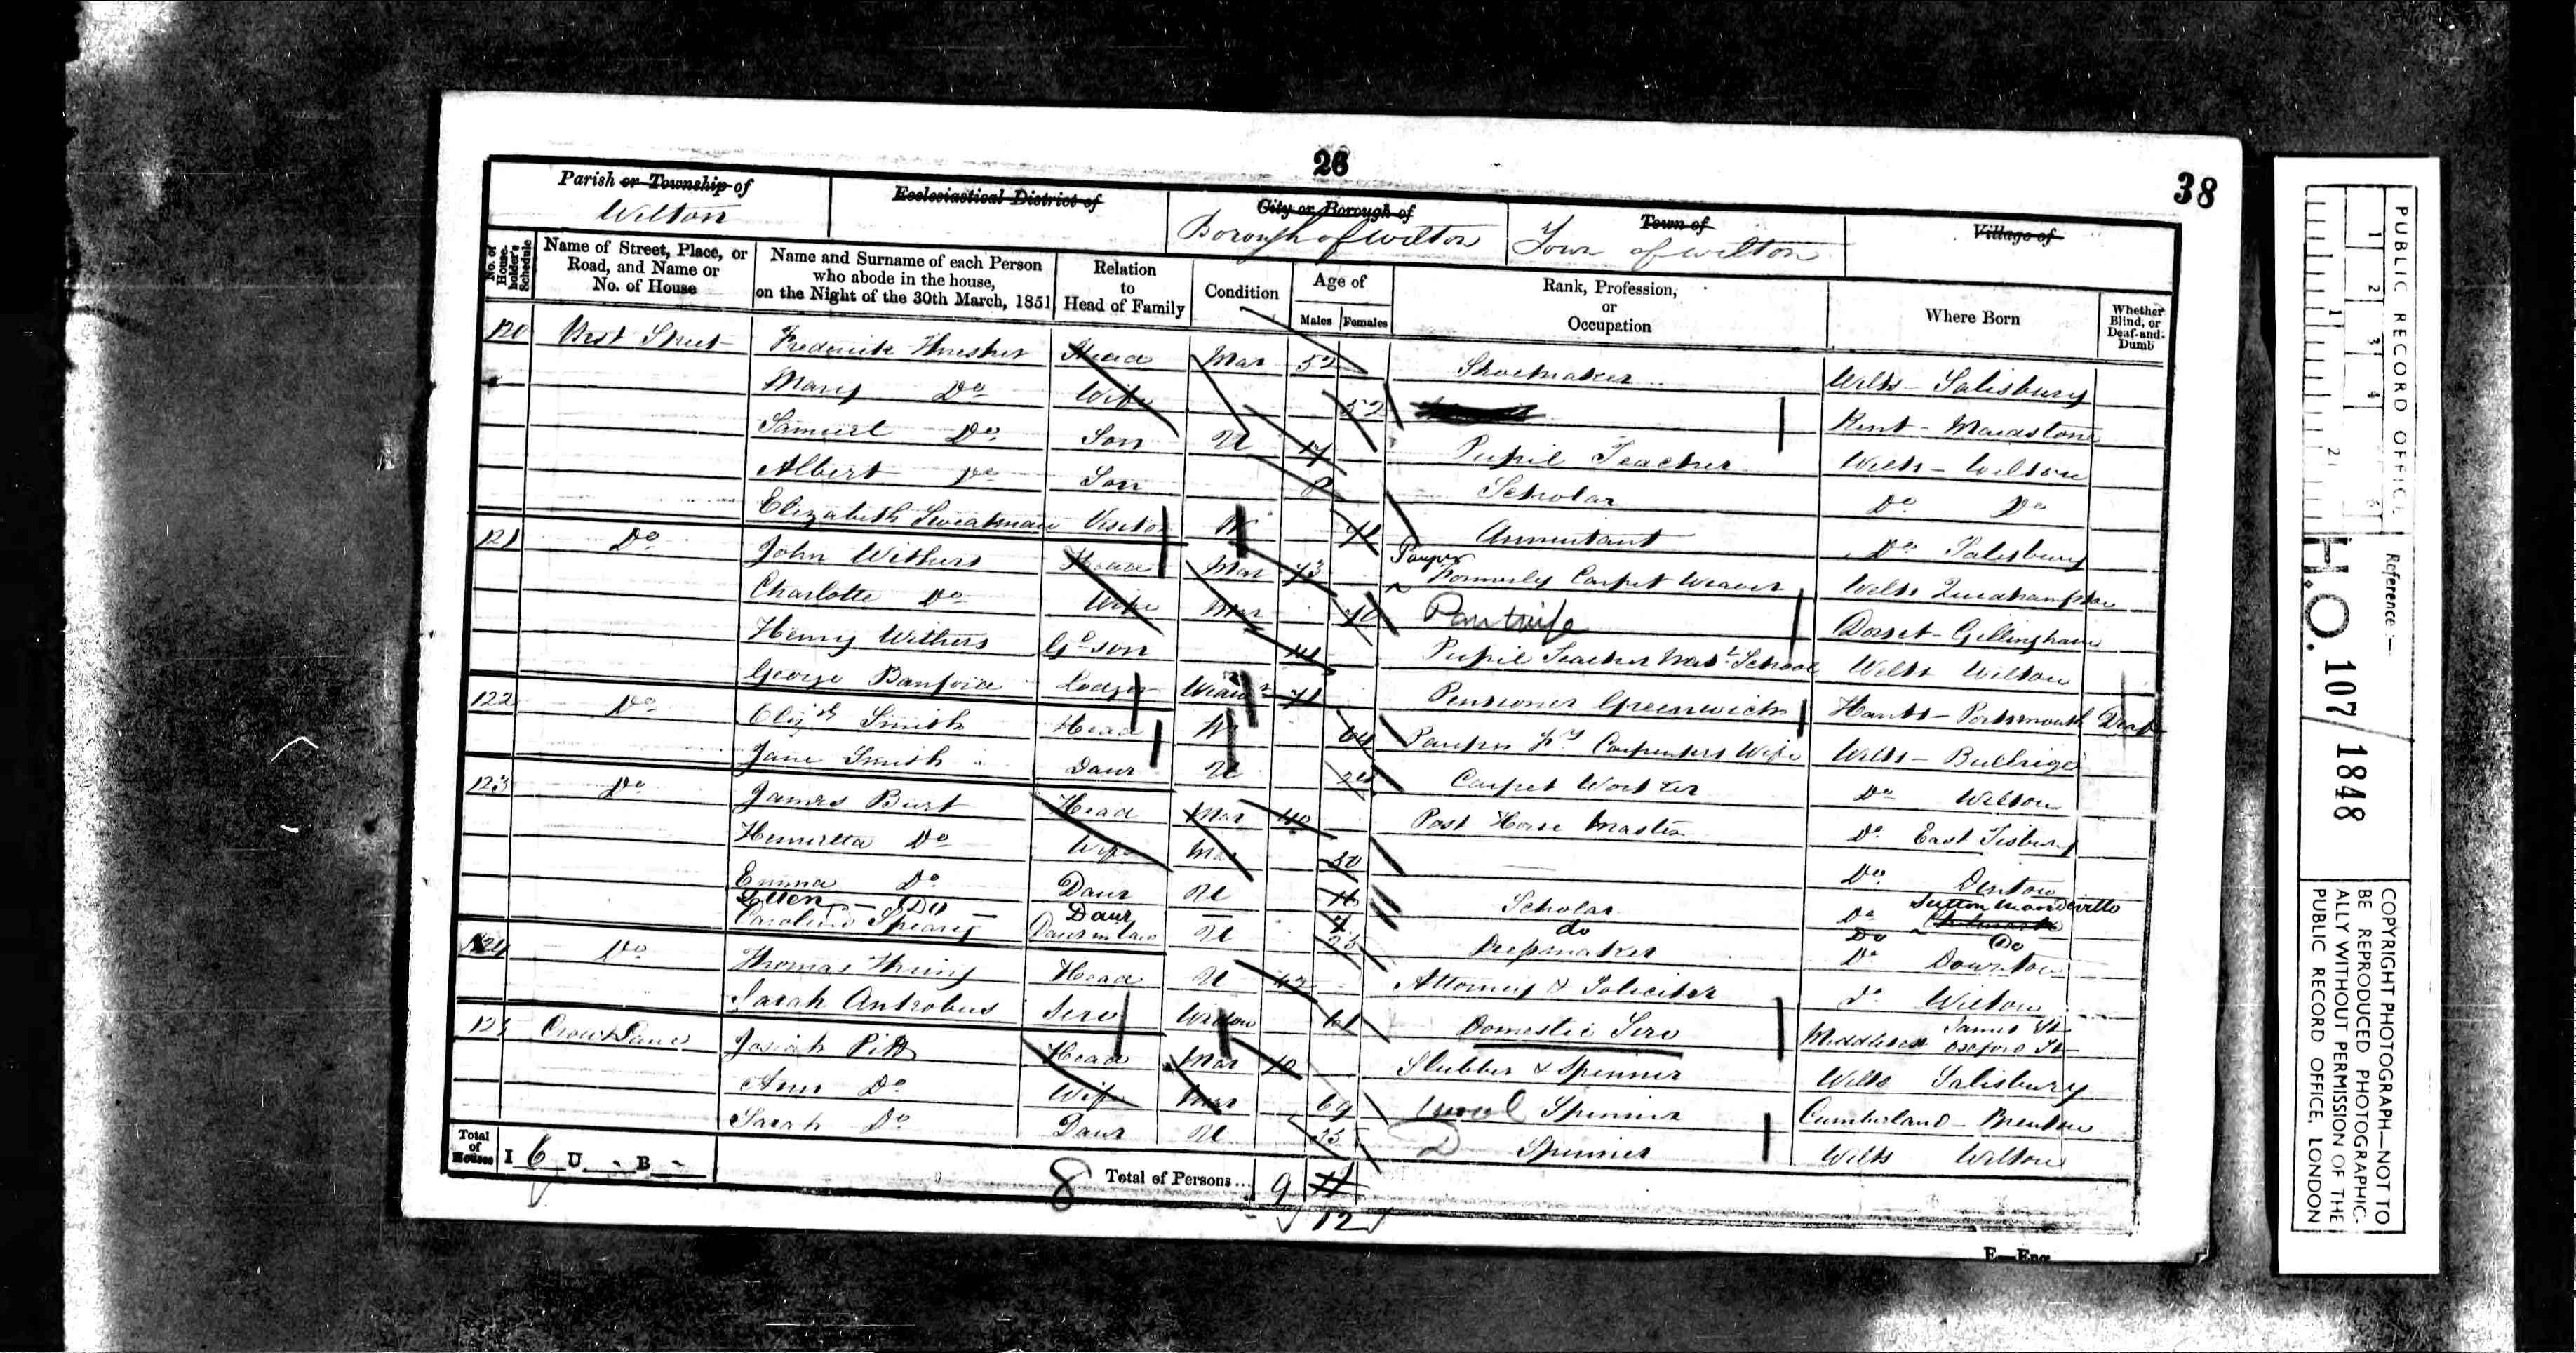 26
38
Parish or Township of
Wilton
Ecclesiastical District of
City or Borough of
Borough of Wilton
Town of
Town of Wilton
Village of
No. of House-holder's Schedule
Name of Street, Place, or Road, and Name or No. of House
Name and Surname of each Person who abode in the house, on the Night of the 30th March, 1851
Relation to Head of Family
Condition
Age of
Males Females
Rank, Profession, or Occupation
Where Born
Whether Blind, or Deaf-and-Dumb
120 West Street Frederick Head Mar 52 Shoemaker Wilts - Salisbury
Mary Do Wife 52 Kent - Maidstone
Samuel Do Son U 17 Pupil Teacher Wilts - Wilton
Albert Do Son 8 Scholar Do Do
Elizabeth Sweatman Visitor W Annuitant Do Salisbury
121 Do John Withers Head Mar 73 Pauper Formerly Carpet Weaver Wilts Quidhampton
Charlotte Do Wife Mar Dorset - Gillingham
Henry Withers Gd son 14 Pupil Teacher Natl School Wilts Wilton
George Lodger 71 Pensioner Greenwich Hants - Portsmouth Deaf
122 Do Elizth Smith Head W 64 Pauper Carpenters Wife Wilts - Bulbrige
Jane Smith Daur U 24 Carpet Worker Do Wilton
123 Do James Burt Head Mar 40 Post Horse Master Do East Tisbury
Henrietta Do Wife Mar 50 Do
Emma Do Daur U 11 Scholar Do Sutton Mandeville
Ellen - Do - Daur - do Do Do
Caroline Daur in law U 25 Do Downton
124 Do Thomas Head U Attorney & Solicitor Do Wilton
Sarah Antrobus Serv Widow 61 Domestic Serv Middlesex James St Oxford St
125 Crow Lane Josiah Pitt Head Mar 70 Slubber & Spinner Wilts Salisbury
Ann Do Wife Mar 69 Spinner Cumberland -
Sarah Do Daur U 35 Spinner Wilts Wilton
Total of Houses I 6 U - B -
8 Total of Persons... 9 11
12
E—Eng.
PUBLIC RECORD OFFICE
1 2 3 4 5
1 2
Reference:—
H.O. 107/1848
COPYRIGHT PHOTOGRAPH—NOT TO
BE REPRODUCED PHOTOGRAPHIC-
ALLY WITHOUT PERMISSION OF THE
PUBLIC RECORD OFFICE, LONDON